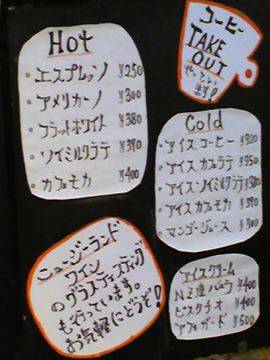 コーヒー
TAKE
OUT
やってい
ます!
Hot
・エスプレッソ ¥250
・アメリカーノ ¥300
・フラットホワイト ¥380
・ソイミルクラテ ¥390
・カフェモカ ¥400
Cold
・アイスコーヒー ¥320
・アイスカフェラテ ¥350
・アイス・ソイミルクラテ
・アイスカフェモカ ¥390
・マンゴージュース ¥300
ニュージーランド
ワイン
のグラステイスティング
も行っています。
お気軽にどうぞ!
アイスクリーム
¥400
ピスタチオ ¥400
アフォガード ¥500